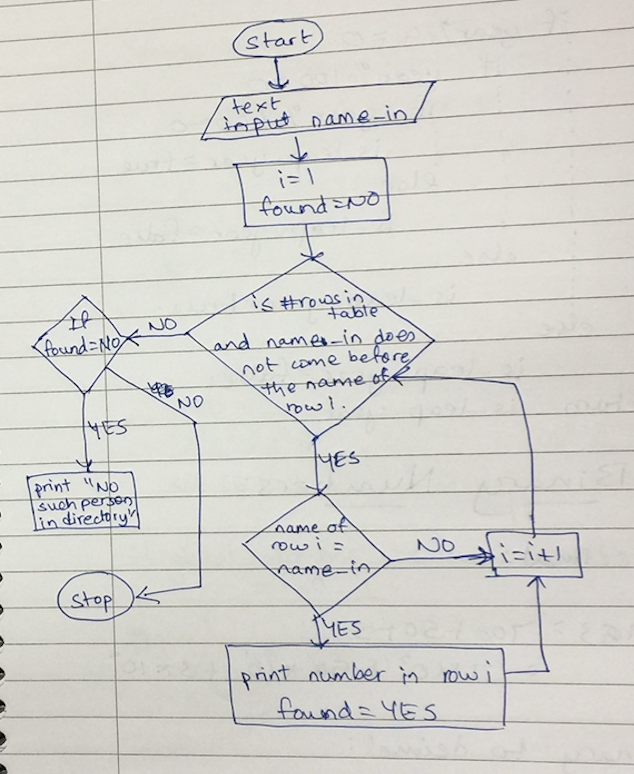 start
text
input name_in
i=1
found=NO
i≤ #rows in
table
and name_in does
not come before
the name of
row i.
NO
If
found=NO
NO
YES
print "NO
such person
in directory"
stop
YES
name of
row i =
name_in
NO
i=i+1
YES
print number in row i
found = YES
Binary Numbers